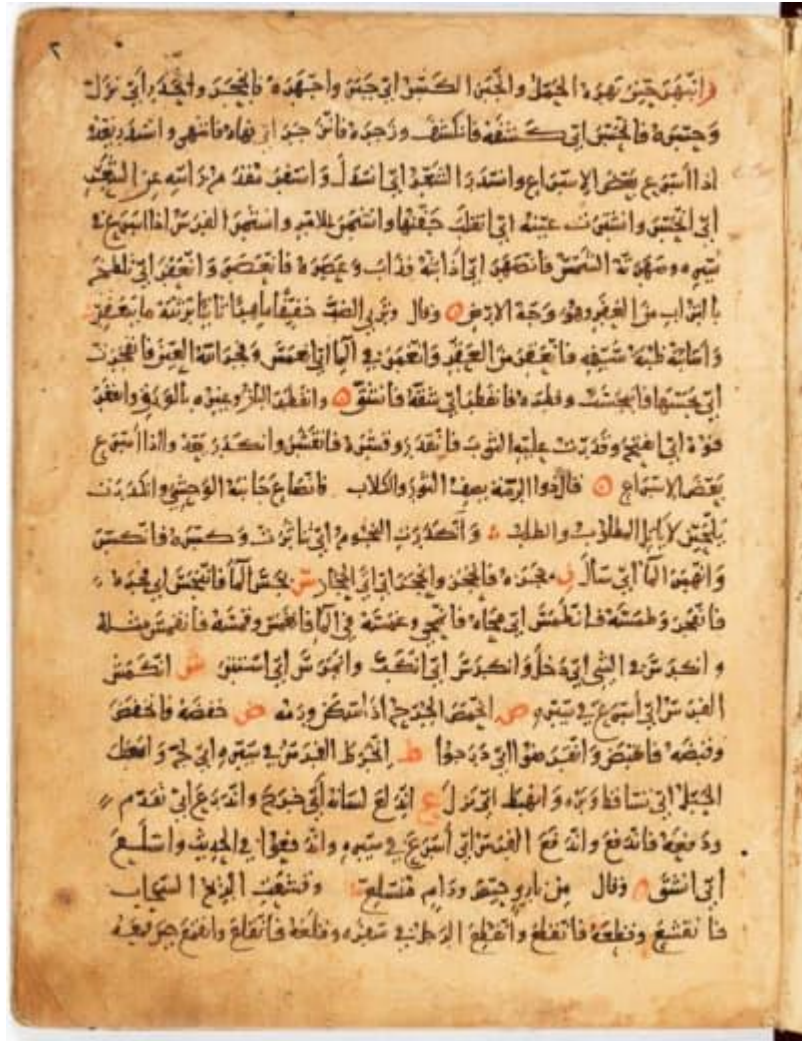 ٢
وانبهر حين بهره الحمل والخبن الكسر اي خبن واجهده فانجحر وانحدر اي نزل
وحسره فانحسر اي كشفه فانكشف وزجره فانزجر اي نهاه فانتهى وانسدر بعدو
اذا اسرع بعض الاسراع وانسدر الشعر اي انسدل وانسفر مقدم راسه عن الشعر
اي انحسر وانشترت عينه اي انقلب جفنها وانشمر للامر وانشمر الفرس اذا اسرع في
سيره وصهرته الشمس فانصهر اي اذابته فذاب وعصره فانعصر وانعفر اي تلطخ
بالتراب من العفر وهو وجه الارض وقال وترى الضب خفيفا ماهرا ثانيا برثنه ما ينعفر
فانعقر من العقر وانغمر في الماء اي انغمس وفجرانه العين فانفجرت
اي بجسها فانبجست وفطره فانفطر اي شقه فانشق وانفطر البلد وغيره بالورق وانفغر
فوه اي انفتح وقدرت عليه الثوب فانقدر وقشره فانقشر وانكدر يعدو اذا اسرع
بعض الاسراع قال ذو الرمة يصف الثور والكلاب فانصاع جانبه الوحشي وانكدرت
يلحبن لا ياتلي المطلوب والطلب وانكدرت النجوم اي تناثرت وكسره فانكسر
وانهمر الماء اي سال ز حجزه فانحجز وانحجز اي اتى الحجاز س بجس الماء فانبجس اي فجره
فانفجر وطمسه فانطمس اي محاه فانمحى وغمسه في الماء فانغمس وقمسه فانقمس مثله
وانكرس في الشي اي دخل وانكرس اي انكب ش انكمش
الفرس اي اسرع في سيره ص انحمص الجرح اذا سكن ورمه ض خفضه فانخفض
وقبضه فانقبض وانقرضوا اي درجوا ط انخرط الفرس في سيره اي لج وامعط
الحبل اي تساقط وبره وانهبط اي نزل ع اندلع لسانه اي خرج واندرع اي تقدم
ودفعه فاندفع واندفع الفرس اي اسرع في سيره واندفعوا في الحديث وانسلع
اي انشق وقال من باري حيص ودام منسلع وقشعت الريح السحاب
فانقشع وقطعه فانقطع وانقطع الرجل في سفره وقلعه فانقلع وانقمع